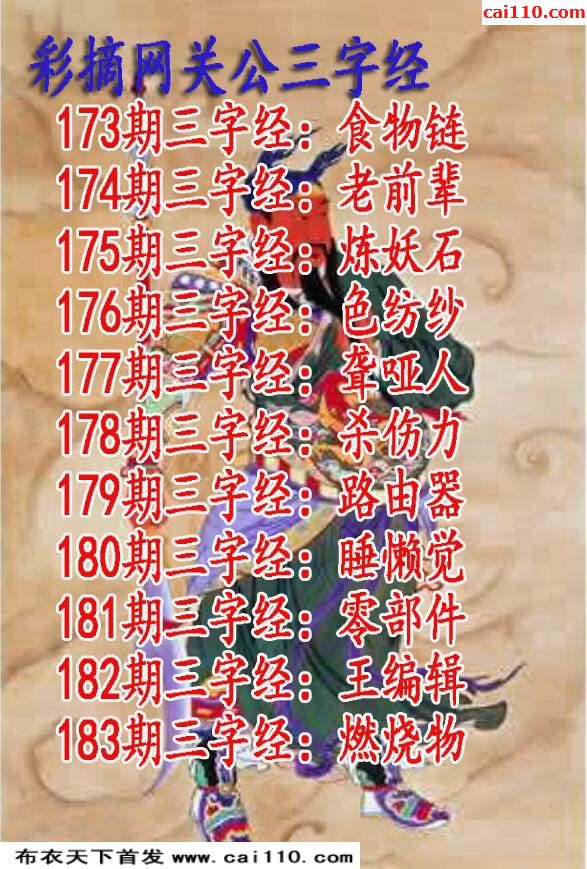 cai110.com
彩摘网关公三字经
173期三字经：食物链
174期三字经：老前辈
175期三字经：炼妖石
176期三字经：色纺纱
177期三字经：聋哑人
178期三字经：杀伤力
179期三字经：路由器
180期三字经：睡懒觉
181期三字经：零部件
182期三字经：王编辑
183期三字经：燃烧物
布衣天下首发 www.cai110.com